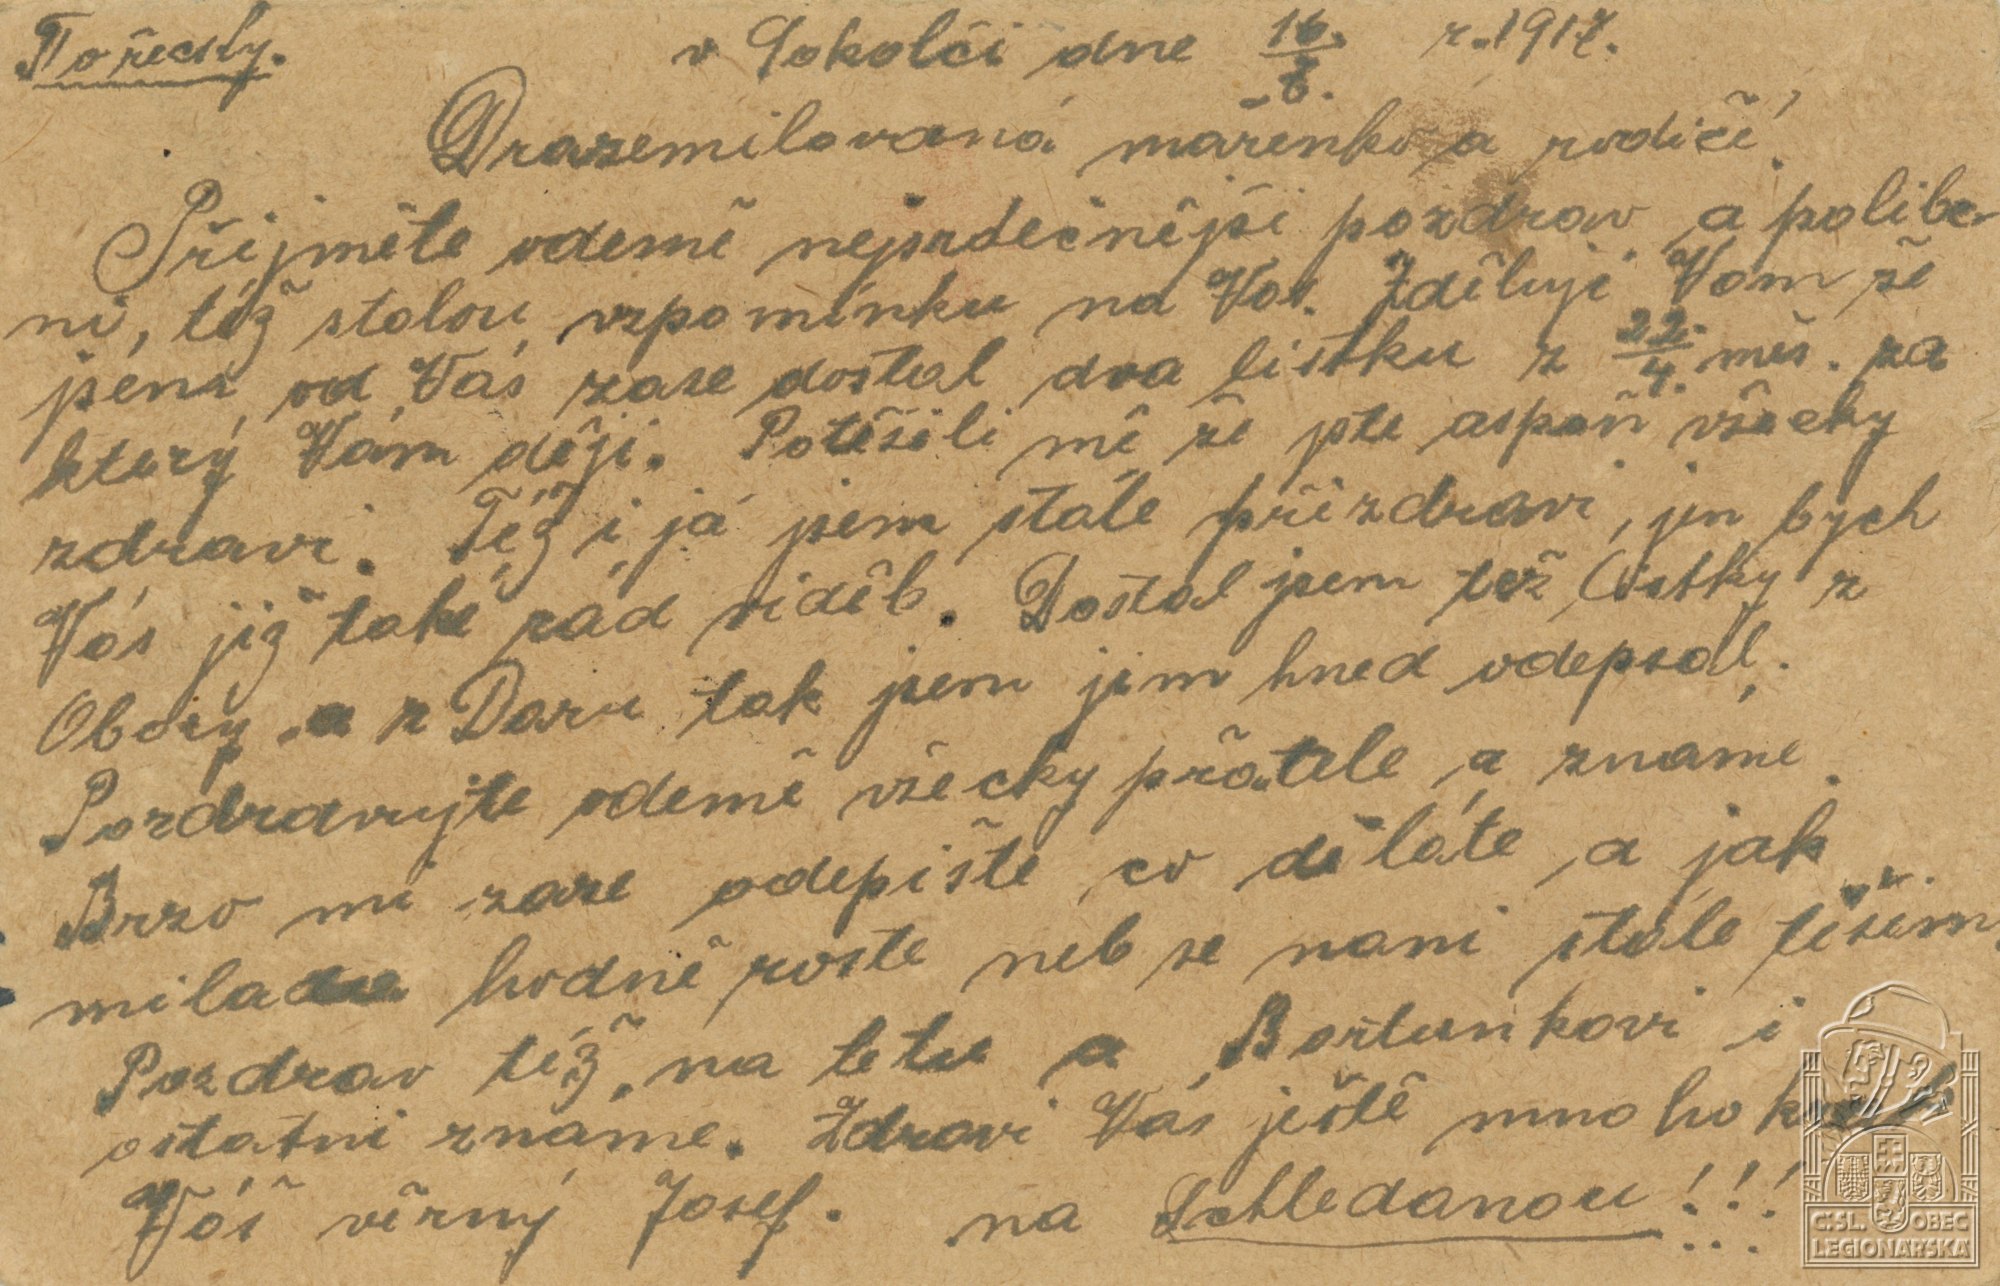 v Sokolči dne 16/8. r. 1917.
Drazemilovaná mařenko a rodiče.
Přijměte odemě nejsrdečnějši pozdrav a polibe-
ni, též stolou vzpomínku na Vas. Zděluji Vam že
jsem od Vás zase dostal dva listku z 22./4. měs. za
ktery Vám ději. Potěšili mě že jste aspoň všecky
zdravi. Též i já jsem stale přizdravi, jen bych
Vás již také rád viděl. Dostal jsem tež listky z
Obory a z Daru tak jsem jim hned odepsal.
Pozdravujte odemě všecky přatele a zname.
Brzo mi zase odepište co děláte a jak
milada hodně roste neb se nani stále těšim.
Pozdrav též na tetu a i
ostatni známe. Zdravi Vás ještě mnoho krat
Váš věrný Josef. na Schledanou!!!
Č:SL. OBEC
LEGIONÁŘSKÁ